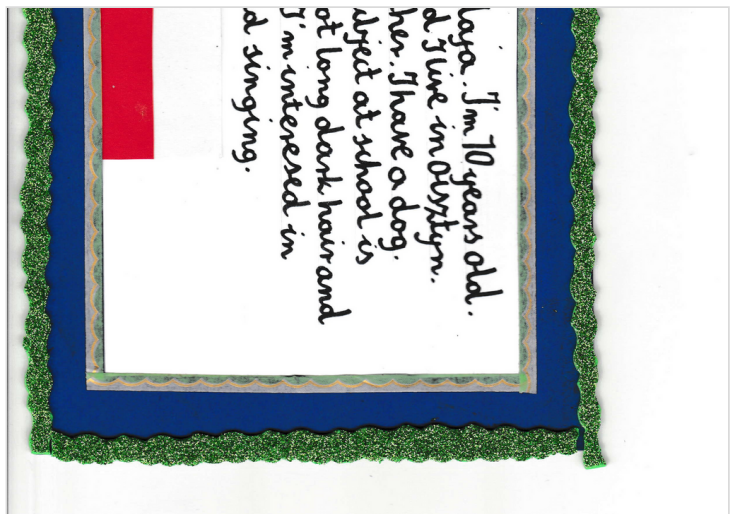 aja. I'm 10 years old.
d I live in Olsztyn.
her. I have a dog.
ubject at school is
ot long dark hair and
I'm interesed in
d singing.